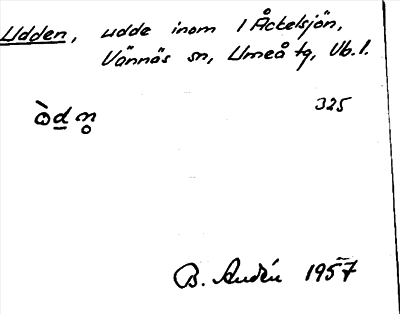 Udden, udde inom 1 Åckelsjön,
Vännäs sn, Umeå tg, Vb. l.
325
B. Audén 1957